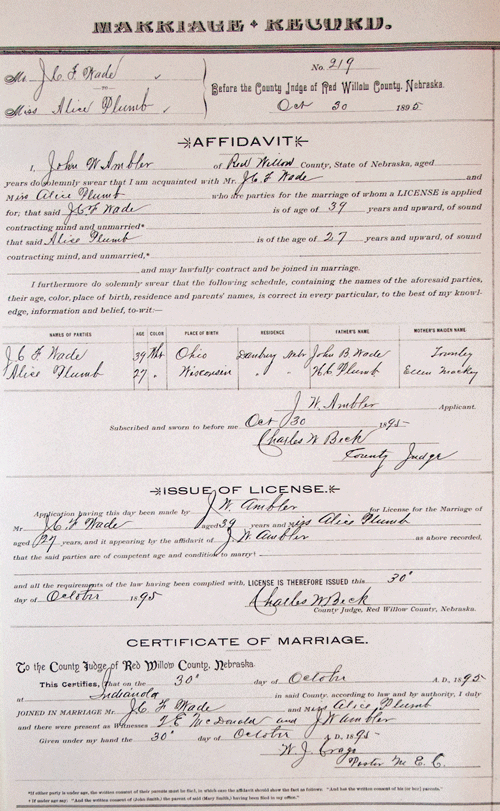 MARRIAGE + RECORD.
Mr J C F Wade
TO
Miss Alice Plumb
No. 219
Before the County Judge of Red Willow County, Nebraska.
Oct 30 1895
AFFIDAVIT
I, John W. Ambler of Red Willow County, State of Nebraska, aged
years do solemnly swear that I am acquainted with Mr. J C F Wade and
Miss Alice Plumb who are parties for the marriage of whom a LICENSE is applied
for; that said J C F Wade is of age of 39 years and upward, of sound
contracting mind and unmarried*
that said Alice Plumb is of the age of 27 years and upward, of sound
contracting mind, and unmarried,*
and may lawfully contract and be joined in marriage.
I furthermore do solemnly swear that the following schedule, containing the names of the aforesaid parties,
their age, color, place of birth, residence and parents' names, is correct in every particular, to the best of my knowl-
edge, information and belief, to-wit:
NAMES OF PARTIES AGE COLOR PLACE OF BIRTH RESIDENCE FATHER'S NAME MOTHER'S MAIDEN NAME
J C F Wade 39 Wht Ohio Danbury Nebr John B Wade Townley
Alice Plumb 27 " Wisconsin " " H C Plumb Ellen Mackey
J. W. Ambler Applicant.
Subscribed and sworn to before me Oct 30 1895
Charles W Beck
County Judge
ISSUE OF LICENSE.
Application having this day been made by J W. Ambler for License for the Marriage of
Mr J C F Wade aged 39 years and Miss Alice Plumb
aged 27 years, and it appearing by the affidavit of J. W Ambler as above recorded,
that the said parties are of competent age and condition to marry
and all the requirements of the law having been complied with, LICENSE IS THEREFORE ISSUED this 30"
day of October 1895 Charles W Beck
County Judge, Red Willow County, Nebraska.
CERTIFICATE OF MARRIAGE.
To the County Judge of Red Willow County, Nebraska.
This Certifies, That on the 30" day of October A. D., 1895
at Indianola in said County, according to law and by authority, I duly
JOINED IN MARRIAGE Mr. J. C F Wade and Miss Alice Plumb
and there were present as Witnesses McDonald and J W Ambler
Given under my hand the 30" day of October A. D. 1895
W. J. Crago
Pastor M. E. C.
*If either party is under age, the written consent of their parents must be filed, in which case the affidavit should show the fact as follows: "And has the written consent of his (or her) parents."
† If under age say: "And the written consent of (John Smith,) the parent of said (Mary Smith,) having been filed in my office."